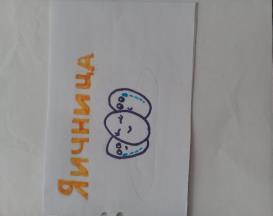 Яичница